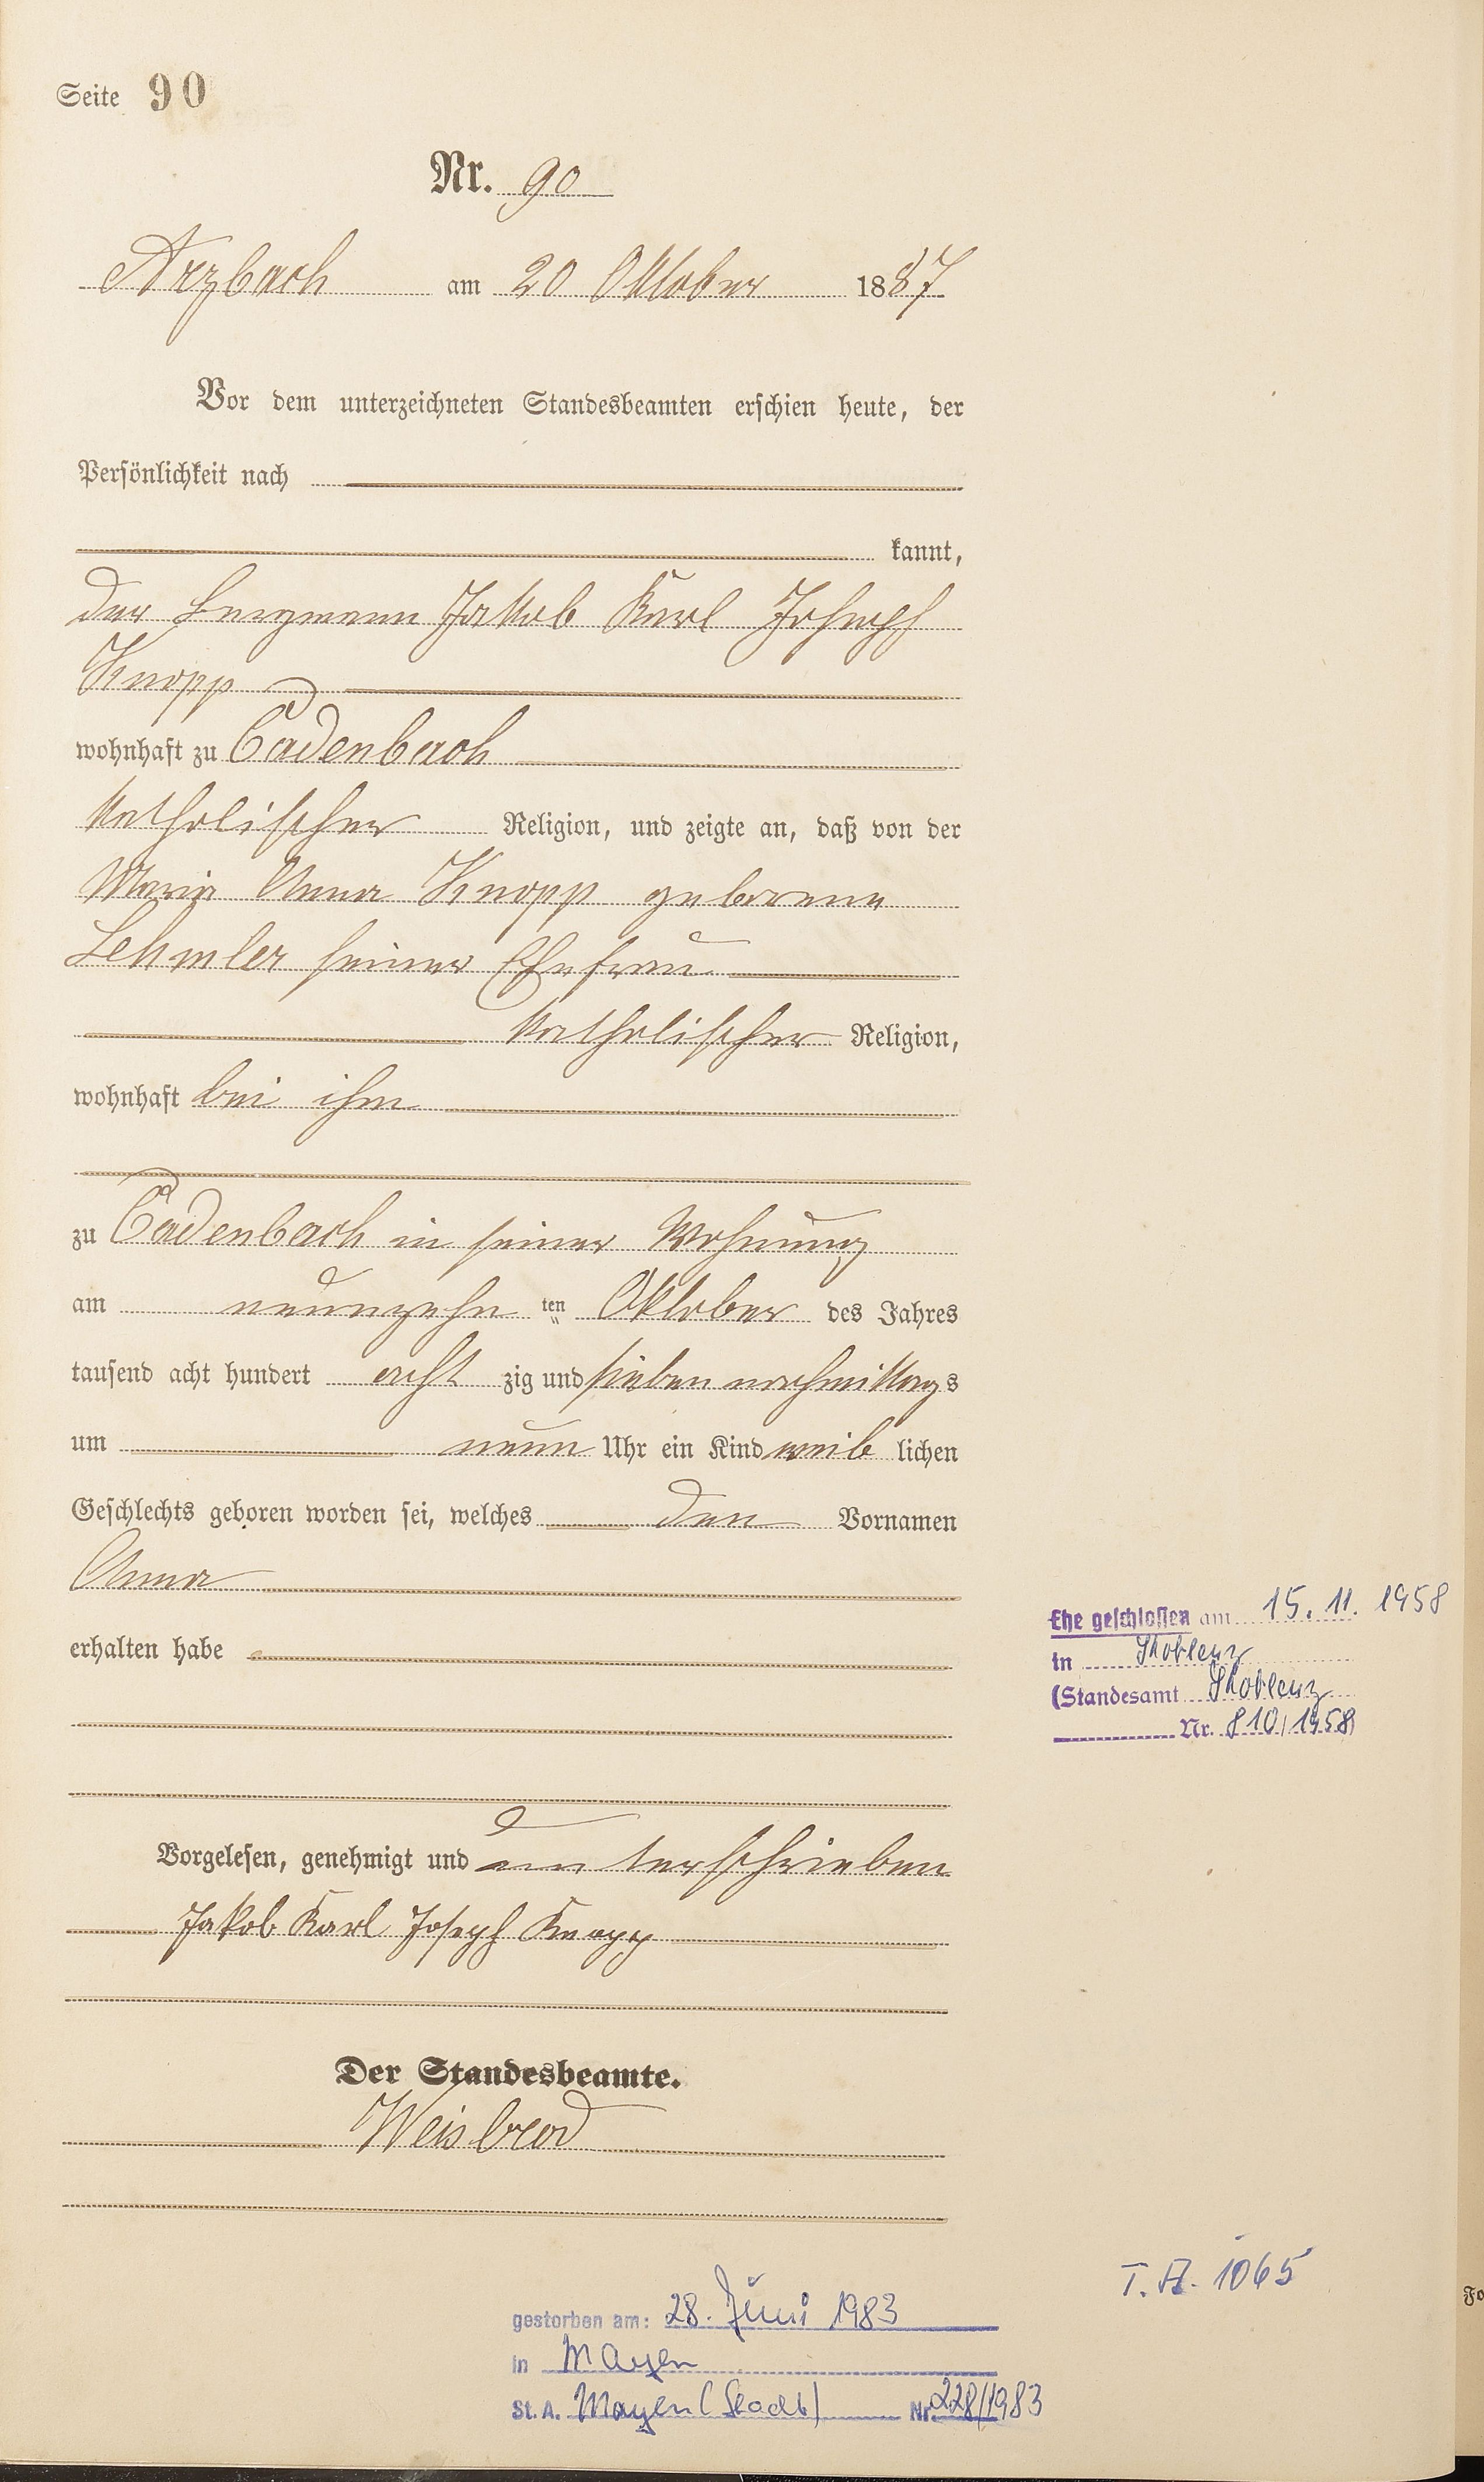 Seite 90
Nr. 90
Arzbach am 20 Oktober 1887
Vor dem unterzeichneten Standesbeamten erschien heute, der
Persönlichkeit nach
kannt,
der Bergmann Jakob Karl Joseph
Knopp
wohnhaft zu Cadenbach
katholischer Religion, und zeigte an, daß von der
Maria Anna Knopp geborene
Lehmler seiner Ehefrau
katholischer Religion,
wohnhaft bei ihm
zu Cadenbach in seiner Wohnung
am neunzehn ten Oktober des Jahres
tausend acht hundert acht zig und sieben nachmittags
um neun Uhr ein Kind weib lichen
Geschlechts geboren worden sei, welches den Vornamen
Anna
erhalten habe
Ehe geschlossen am 15. 11. 1958
in Koblenz
(Standesamt Koblenz
Nr. 810/1958)
Vorgelesen, genehmigt und unterschrieben
Jakob Karl Joseph Knopp
Der Standesbeamte.
Weisbrod
T. A. 1065
gestorben am: 28. Juni 1983
in Mayen
St. A. Mayen (Stadt) Nr. 228/1983